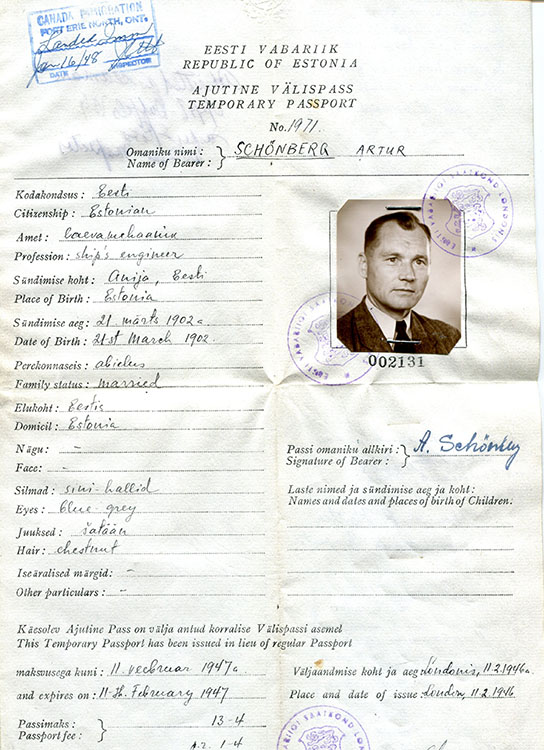 CANADA IMMIGRATION
FORT ERIE NORTH, ONT.
Landed
Jan 16/48
DATE INSPECTOR
EESTI VABARIIK
REPUBLIC OF ESTONIA
AJUTINE VÄLISPASS
TEMPORARY PASSPORT
No. 1971.
Omaniku nimi :
Name of Bearer : } SCHÖNBERG ARTUR
Kodakondsus : Eesti
Citizenship : Estonian
Amet : laevamehaanik
Profession : ship's engineer
Sündimise koht : Anija, Eesti
Place of Birth : Estonia
Sündimise aeg : 21. märts 1902a
Date of Birth : 21st March 1902.
Perekonnaseis : abielus
Family status : married
Elukoht : Eestis
Domicil : Estonia
Nägu : -
Face : -
Silmad : sini-hallid
Eyes : blue-grey
Juuksed : šatään
Hair : chestnut
Iseäralised märgid : -
Other particulars : -
EESTI VABARIIGI SAATKOND LONDONIS
EESTI VABARIIGI SAATKOND
002131
Passi omaniku allkiri :
Signature of Bearer : } A. Schönberg
Laste nimed ja sündimise aeg ja koht :
Names and dates and places of birth of Children.
Käesolev Ajutine Pass on välja antud korralise Välispassi asemel
This Temporary Passport has been issued in lieu of regular Passport
maksvusega kuni : 11. veebruar 1947a
and expires on : 11th. February 1947
Väljaandmise koht ja aeg Londonis, 11.2.1946a.
Place and date of issue London, 11.2.1946
Passimaks :
Passport fee : } 13-4
1-4